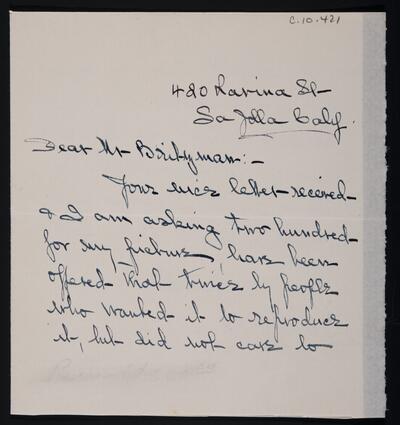 C.10.421
420 Ravina St-
La Jolla Calif.
Dear Mr Bridgman:-
Your nice letter received-
& I am asking two hundred-
for my picture, have been
offered that twice by people
who wanted it to reproduce
it, but did not care to